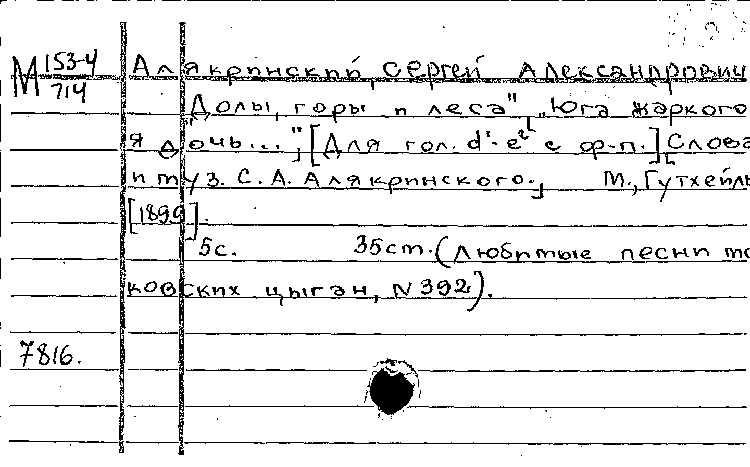 М 153-4/714
Алякринский, Сергей Александрович
"Долы, горы и леса", "Юга жаркого
я дочь...", [Для гол. d¹-e² с ф-п.] Слова
и муз. С. А. Алякринского. М., Гутхейль
[1899].
5с. 35ст. (Любимые песни мо
ковских цыган, N 392).
7816.